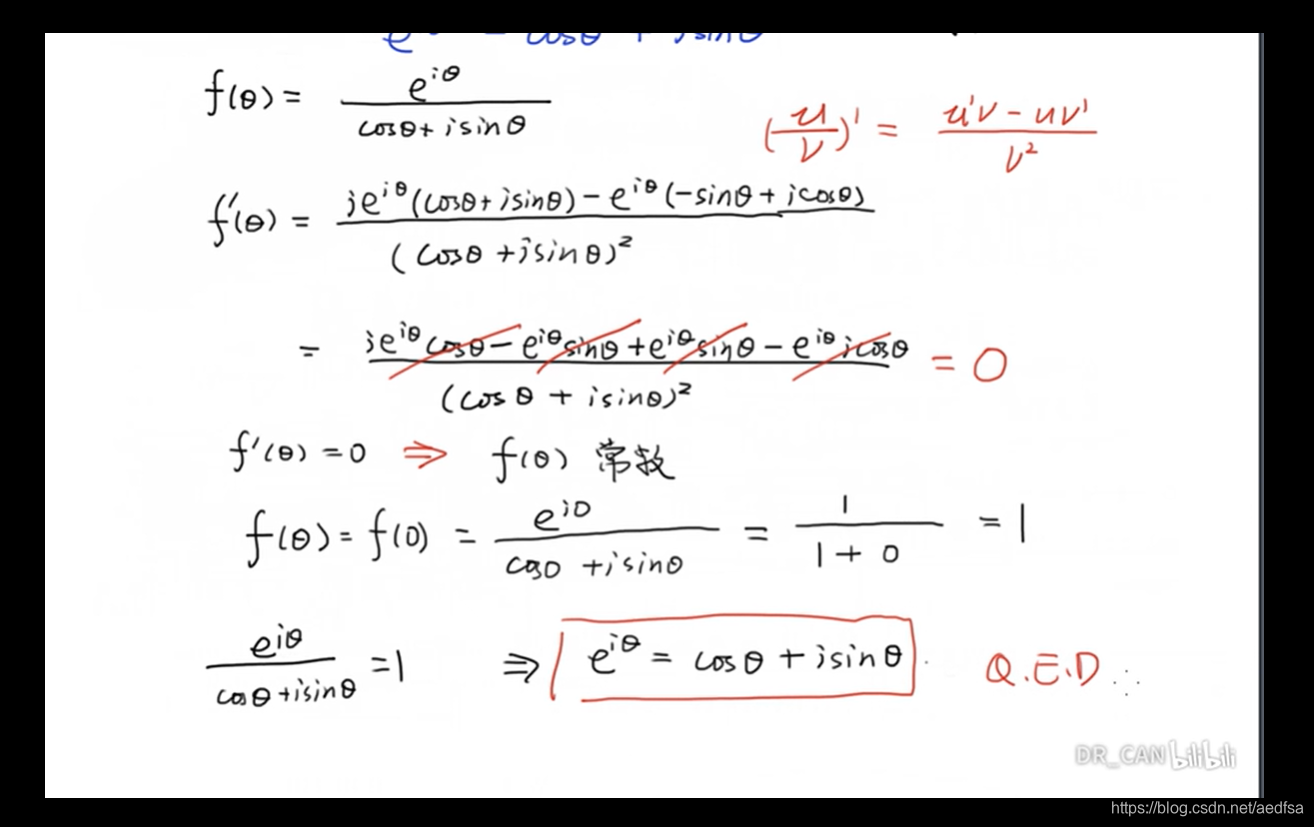 e^{iθ} = cosθ + isinθ
f(θ) = \frac{e^{iθ}}{cosθ + isinθ}
(\frac{u}{v})' = \frac{u'v - uv'}{v²}
f'(θ) = \frac{ie^{iθ}(cosθ + isinθ) - e^{iθ}(-sinθ + icosθ)}{(cosθ + isinθ)²}
= \frac{ie^{iθ}cosθ - e^{iθ}sinθ + e^{iθ}sinθ - e^{iθ}icosθ}{(cosθ + isinθ)²} = 0
f'(θ) = 0 ⇒ f(θ) 常数
f(θ) = f(0) = \frac{e^{i0}}{cos0 + isin0} = \frac{1}{1 + 0} = 1
\frac{e^{iθ}}{cosθ + isinθ} = 1 ⇒ e^{iθ} = cosθ + isinθ Q.E.D
DR_CAN bilibili
https://blog.csdn.net/aedfsa